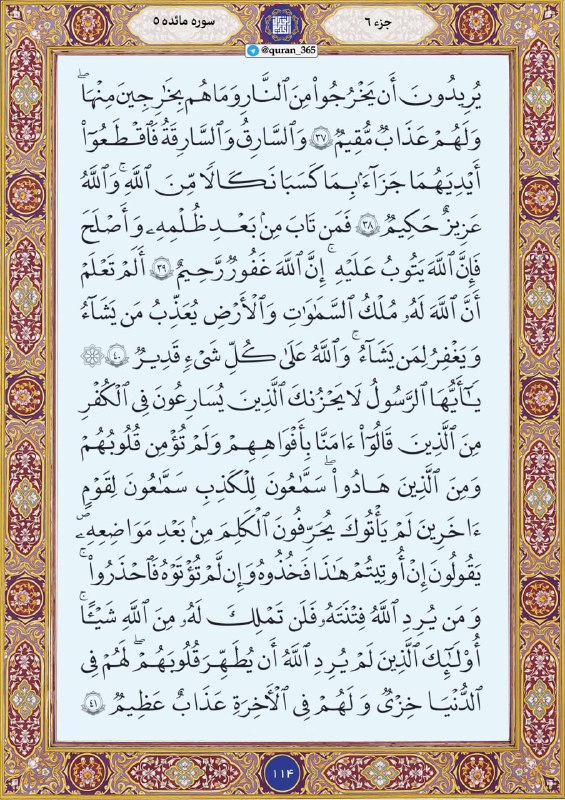 جزء ۶
سوره مائده ۵
@quran_365
يُرِيدُونَ أَن يَخْرُجُوا۟ مِنَ ٱلنَّارِ وَمَا هُم بِخَـٰرِجِينَ مِنْهَا ۖ
وَلَهُمْ عَذَابٌ مُّقِيمٌ ۝٣٧ وَٱلسَّارِقُ وَٱلسَّارِقَةُ فَٱقْطَعُوٓا۟
أَيْدِيَهُمَا جَزَآءًۢ بِمَا كَسَبَا نَكَـٰلًا مِّنَ ٱللَّهِ ۗ وَٱللَّهُ
عَزِيزٌ حَكِيمٌ ۝٣٨ فَمَن تَابَ مِنۢ بَعْدِ ظُلْمِهِۦ وَأَصْلَحَ
فَإِنَّ ٱللَّهَ يَتُوبُ عَلَيْهِ ۗ إِنَّ ٱللَّهَ غَفُورٌ رَّحِيمٌ ۝٣٩ أَلَمْ تَعْلَمْ
أَنَّ ٱللَّهَ لَهُۥ مُلْكُ ٱلسَّمَـٰوَٰتِ وَٱلْأَرْضِ يُعَذِّبُ مَن يَشَآءُ
وَيَغْفِرُ لِمَن يَشَآءُ ۗ وَٱللَّهُ عَلَىٰ كُلِّ شَىْءٍ قَدِيرٌ ۝٤٠
يَـٰٓأَيُّهَا ٱلرَّسُولُ لَا يَحْزُنكَ ٱلَّذِينَ يُسَـٰرِعُونَ فِى ٱلْكُفْرِ
مِنَ ٱلَّذِينَ قَالُوٓا۟ ءَامَنَّا بِأَفْوَٰهِهِمْ وَلَمْ تُؤْمِن قُلُوبُهُمْ
وَمِنَ ٱلَّذِينَ هَادُوا۟ ۛ سَمَّـٰعُونَ لِلْكَذِبِ سَمَّـٰعُونَ لِقَوْمٍ
ءَاخَرِينَ لَمْ يَأْتُوكَ ۖ يُحَرِّفُونَ ٱلْكَلِمَ مِنۢ بَعْدِ مَوَاضِعِهِۦ ۖ
يَقُولُونَ إِنْ أُوتِيتُمْ هَـٰذَا فَخُذُوهُ وَإِن لَّمْ تُؤْتَوْهُ فَٱحْذَرُوا۟ ۚ
وَمَن يُرِدِ ٱللَّهُ فِتْنَتَهُۥ فَلَن تَمْلِكَ لَهُۥ مِنَ ٱللَّهِ شَيْـًٔا ۚ
أُو۟لَـٰٓئِكَ ٱلَّذِينَ لَمْ يُرِدِ ٱللَّهُ أَن يُطَهِّرَ قُلُوبَهُمْ ۚ لَهُمْ فِى
ٱلدُّنْيَا خِزْىٌ ۖ وَلَهُمْ فِى ٱلْـَٔاخِرَةِ عَذَابٌ عَظِيمٌ ۝٤١
۱۱۴